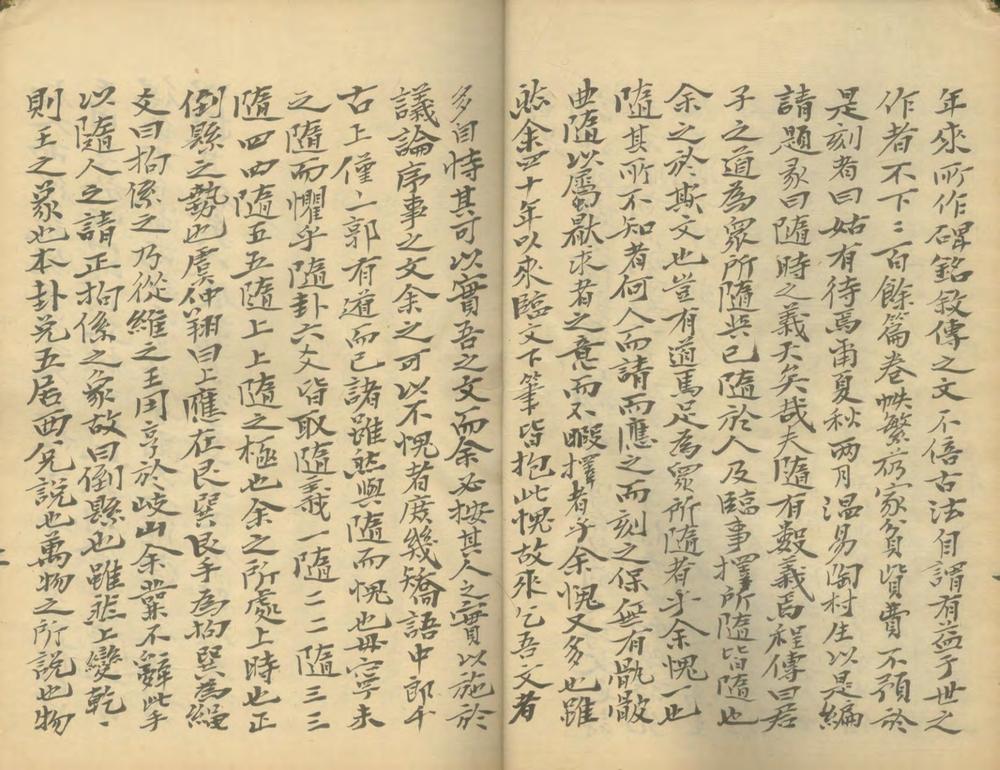 年來所作碑銘敘傳之文不倍古法自謂有益于世之
作者不下二百餘篇卷帙繁夥家貧貲費不預於
是刻者曰姑有待焉甫夏秋兩月温易陶村生以是編
請題彖曰隨時之義大矣哉夫隨有數義焉程傳曰君
子之道為眾所隨與己隨於人及臨事擇所隨皆隨也
余之於斯文也豈有道焉足為眾所隨者乎余愧一也
隨其所不知者何人而請而應之而刻之保無有骩骳
曲隨以屬厭求者之意而不暇擇者乎余愧又多也雖
然余四十年以來臨文下筆皆抱此愧故來乞吾文者
多自恃其可以實吾之文而余必按其人之實以施於
議論序事之文余之可以不愧者庶幾矯語中郎千
古上僅僅郭有道而已諸雖然與隨而愧也毋寧未
之隨而懼乎隨卦六爻皆取隨義一隨二二隨三三
隨四四隨五五隨上上隨之極也余之所處上時也正
倒縣之勢也虞仲翔曰上應在艮巽艮手為拘巽為繩
爻曰拘係之乃從維之王用亨於岐山余曩不辭此乎
以隨人之請正拘係之象故曰倒縣也雖非上變乾乾
則王之象也本卦兑五居西兑說也萬物之所說也物